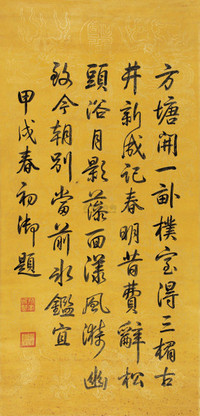 方塘開一畝樸室得三楣古
井新成記春明昔費辭松
頭浴月影藻面漾風漪幽
致今朝別當前水鑑宜
甲戌春初御題